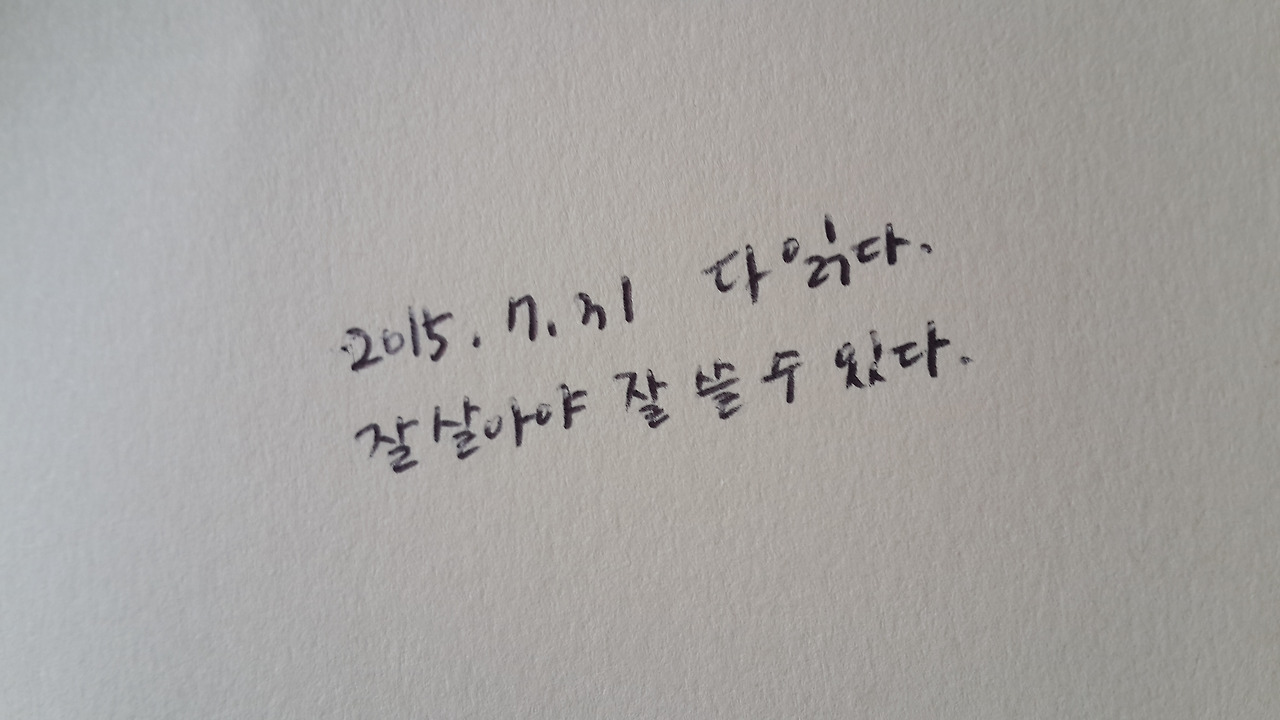 2015. 7. 31 다 읽다.
잘 살아야 잘 쓸 수 있다.